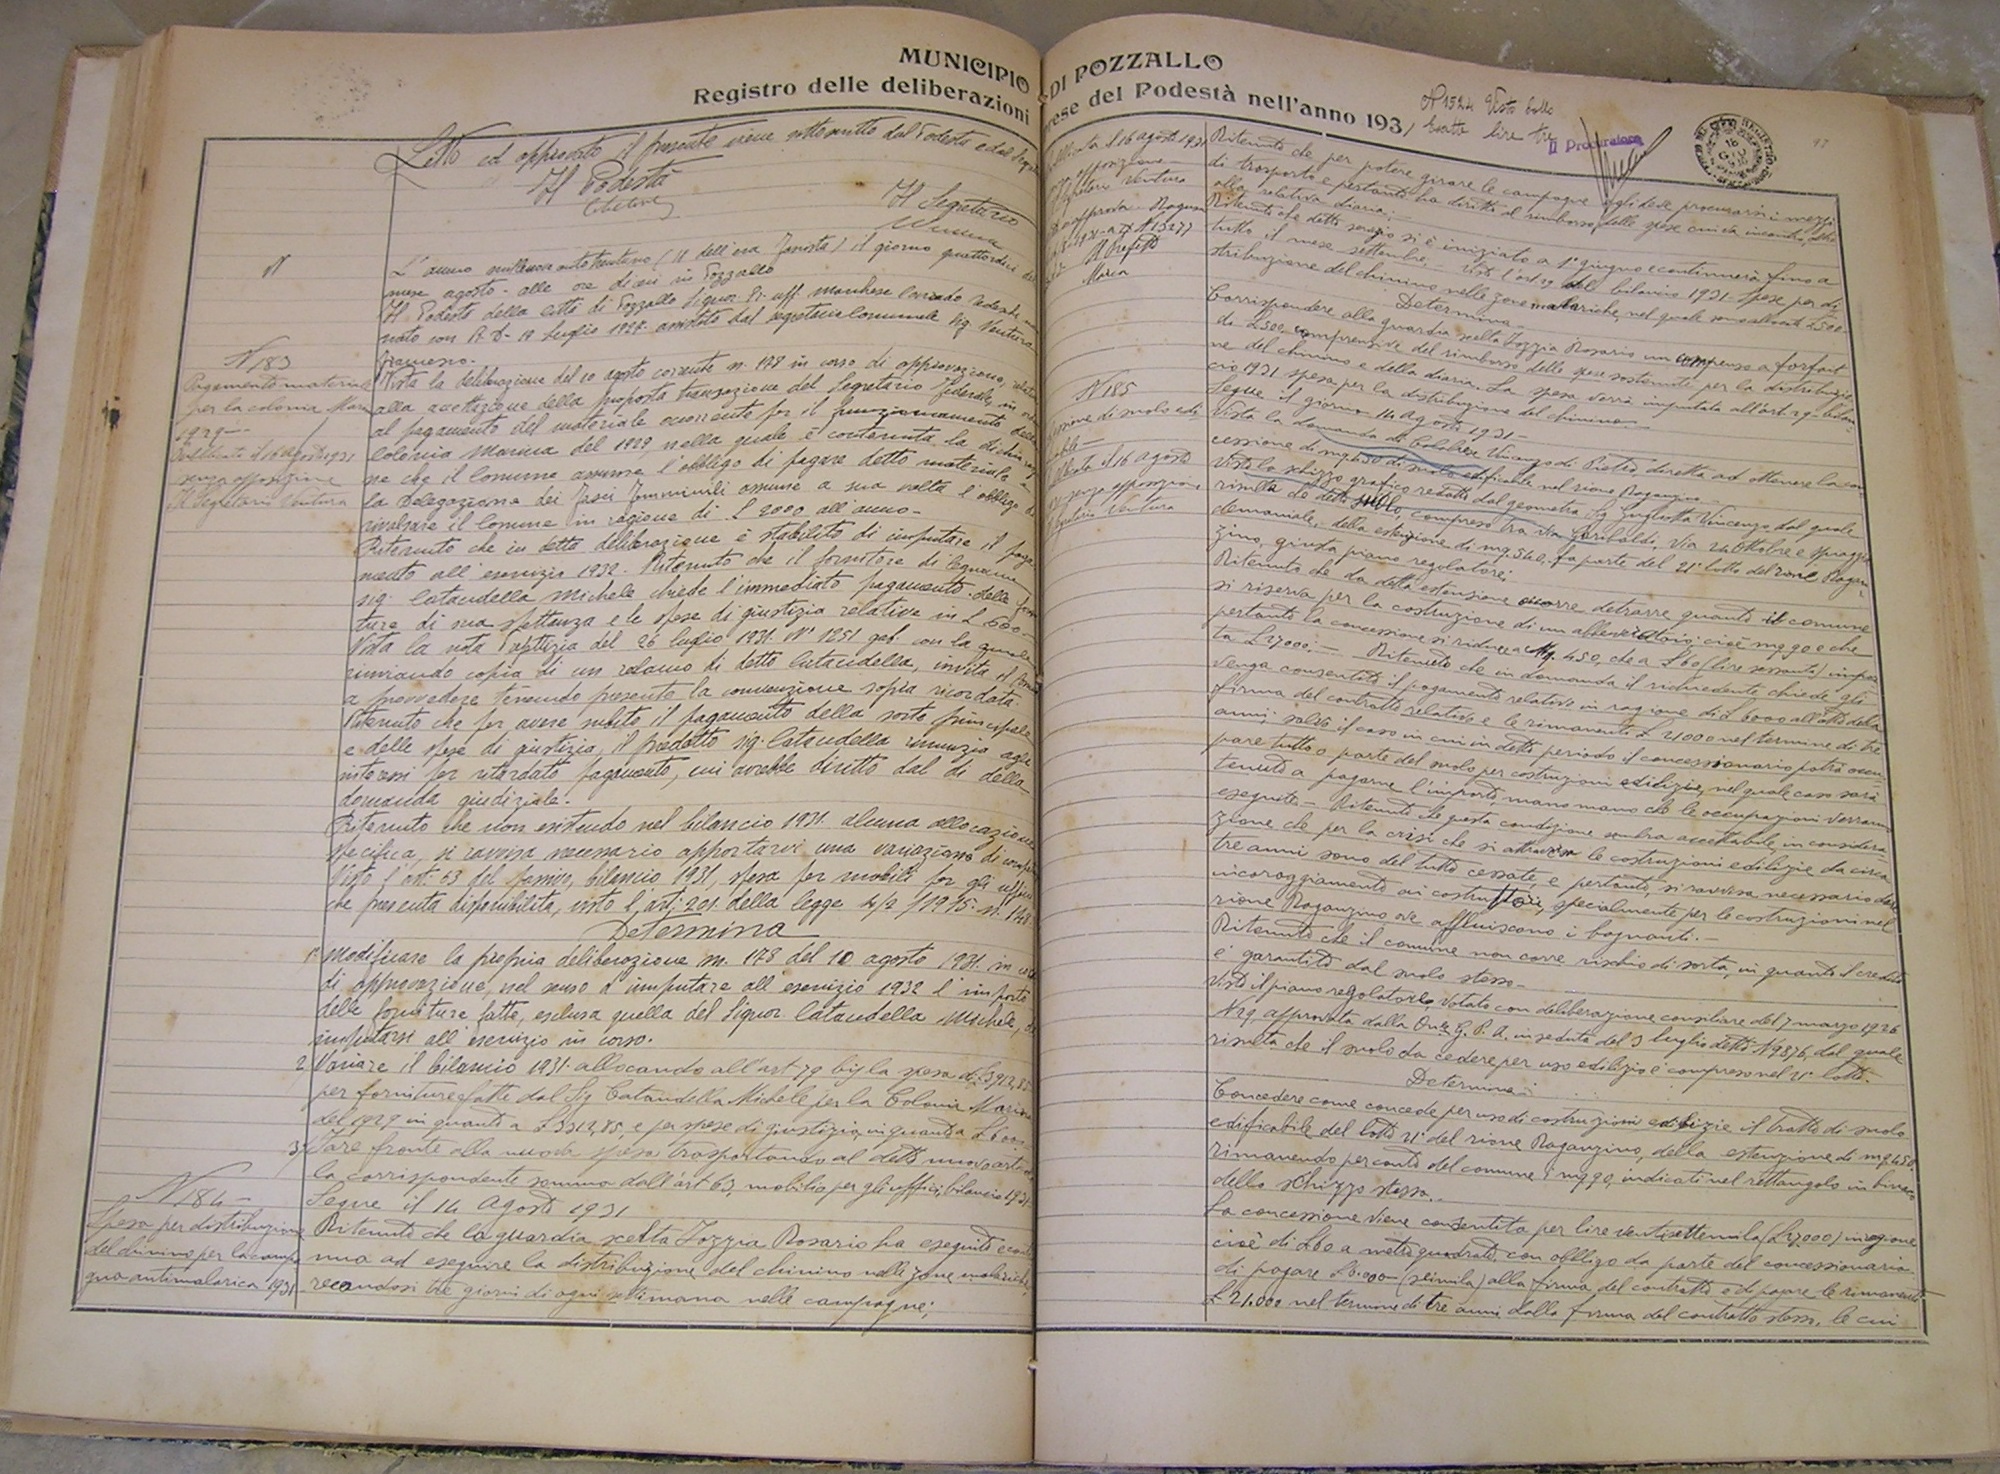 MUNICIPIO DI POZZALLO
Registro delle deliberazioni prese del Podestà nell'anno 1931
Letto ed approvato il presente viene sottoscritto dal Podestà e dal
Il Podestà
Il Segretario
L'anno millenovecentotrentuno ( dell'era fascista) il giorno quattordici del
mese agosto alle ore dieci in Pozzallo
Il Podestà della città di Pozzallo Signor marchese Corrado Tedeschi
nato con R. D. Luglio assistito dal segretario Comunale Sig. Ventura
Francesco.
N 183
Pagamento materiale
per la colonia Marina
1929
Pubblicata il 16 agosto 1931
senza opposizione
Il Segretario Ventura
Vista la deliberazione del 10 agosto corrente n. 178 in corso di approvazione, relativa
alla accettazione della proposta transazione del Segretario Federale, in
al pagamento del materiale occorrente per il funzionamento della
Colonia Marina del 1929, nella quale è contenuta la dichiarazio
ne che il Comune assume l'obbligo di pagare detto materiale e
la Delegazione dei Fasci Femminili assume a sua volta l'obbligo di
rivalsare il Comune in ragione di L 2000 all'anno.
Ritenuto che in detta deliberazione è stabilito di imputare il paga
mento all'esercizio 1932. Ritenuto che il fornitore di legname
sig. Cataudella Michele chiede l'immediato pagamento delle forni
ture di sua spettanza e le spese di giustizia relative in L 600
Vista la nota Prefettizia del 26 luglio 1931. N° 1251 gab. con la quale
inviando copia di un reclamo di detto Cataudella, invita il
a provvedere tenendo presente la convenzione sopra ricordata.
Ritenuto che per avere subito il pagamento della sorte principale
e delle spese di giustizia, il predetto sig. Cataudella rinunzia agli
interessi per ritardato pagamento, cui avrebbe diritto dal dì della
domanda giudiziale.
Ritenuto che non esistendo nel bilancio 1931 alcuna allocazione
specifica, si ravvisa necessario apportarvi una variazione di
Visto l'art. 63 del bilancio 1931, spesa per mobili per gli uffici
che presenta disponibilità, visto l'art. 201 della legge 4/2/1915 n. 148
Determina
1° Modificare la propria deliberazione n. 178 del 10 agosto 1931. in corso
di approvazione, nel senso d'imputare all'esercizio 1932 l'importo
delle forniture fatte, esclusa quella del Signor Cataudella Michele, da
imputarsi all'esercizio in corso.
2) Variare il bilancio 1931. allocando all'art 79 bis la spesa di L 3912,85
per forniture fatte dal Sig Cataudella Michele per la Colonia Marina
del 1929 in quanto a L 3312,85, e per spese di giustizia, in quanto a L 600
3) Fare fronte alla nuova spesa trasportando al detto nuovo articolo
la corrispondente somma dall'art 63, mobilio per gli uffici, bilancio 1931.
N 184
Spesa per distribuzione
del chinino per la campa
gna antimalarica 1931
Segue il 14 Agosto 1931
Ritenuto che la guardia scelta Iozzia Rosario ha eseguito e conti
nua ad eseguire la distribuzione del chinino nelle zone malariche,
recandosi tre giorni di ogni settimana nelle campagne;
N 1524 Visto bollo
Esatte lire tre
Il Procuratore
97
Pubblicata il 16 agosto 1931
opposizione
Segretario Ventura
approva Ragusa
N 13277
Il Prefetto
Marca
Ritenuto che per potere girare le campagne egli deve procurarsi i mezzi
di trasporto e pertanto ha diritto al rimborso delle spese cui va incontro, oltre
alla relativa diaria;
Ritenuto che detto servizio si è iniziato a 1° giugno e continuerà fino a
tutto il mese settembre. Visto l'art 29 del bilancio 1931 Spese per di
stribuzione del chinino nelle zone malariche, nel quale sono allocate L 500.
Determina
Corrispondere alla guardia scelta Iozzia Rosario un compenso a forfait
di L 500 comprensive del rimborso delle spese sostenute per la distribuzio
ne del chinino e della diaria. La spesa verrà imputata all'art 29 bilan
cio 1931 spesa per la distribuzione del chinino
N 185
Cessione di suolo edi
ficabile
Pubblicata il 16 agosto
senza opposizione
Segretario Ventura
Segue il giorno 14 Agosto 1931
Vista la domanda di Calabrese Vincenzo di Pietro diretta ad ottenere la con
cessione di mq 450 di suolo edificabile nel rione Raganzino
Visto lo schizzo grafico redatto dal geometra Sig Vincenzo dal quale
risulta che detto suolo compreso tra via Garibaldi, via 24 Ottobre e spiaggia
demaniale, della estensione di mq. 540, fa parte del 21° lotto del rione Ragan
zino, giusta piano regolatore;
Ritenuto che da detta estensione occorre detrarre quanto il comune
si riserva per la costruzione di un abbeveratoio cioè mq 90 e che
pertanto la concessione si riduce a Mq. 450, che a L 60 (lire sessanta) impor
ta L 27000. Ritenuto che in domanda il richiedente chiede gli
venga consentito il pagamento relativo in ragione di L 6000 all'atto della
firma del contratto relativo e le rimanenti L 21000 nel termine di tre
anni salvo il caso in cui in detto periodo il concessionario potrà occu
pare tutto o parte del suolo per costruzioni edilizie, nel quale caso sarà
tenuto a pagarne l'importo, mano mano che le occupazioni verranno
eseguite. Ritenuto che questa condizione sembra accettabile, in considera
zione che per la crisi che si attraversa le costruzioni edilizie da circa
tre anni sono del tutto cessate, e pertanto, si ravvisa necessario dare
incoraggiamento ai costruttori, specialmente per le costruzioni nel
rione Raganzino ove affluiscono i bagnanti.
Ritenuto che il comune non corre rischio di sorta, in quanto il credito
è garantito dal suolo stesso
Visto il piano regolatore votato con deliberazione consiliare del 7 marzo 1926
N 29, approvata dalla On.le G. P. A. in seduta del 3 luglio detto N 9876, dal quale
risulta che il suolo da cedere per uso edilizio è compreso nel 21° lotto.
Determina
Concedere come concede per uso di costruzioni edilizie il tratto di suolo
edificabile del lotto 21° del rione Raganzino, della estensione di mq 450
rimanendo per conto del comune i mq 90, indicati nel rettangolo in bianco
dello schizzo stesso.
La concessione viene consentita per lire ventisettemila (L 27000) in ragione
cioè di L 60 a metro quadrato, con obbligo da parte del concessionario
di pagare L 6.000 (seimila) alla firma del contratto e di pagare le rimanenti
L 21.000 nel termine di tre anni dalla firma del contratto stesso, le cui